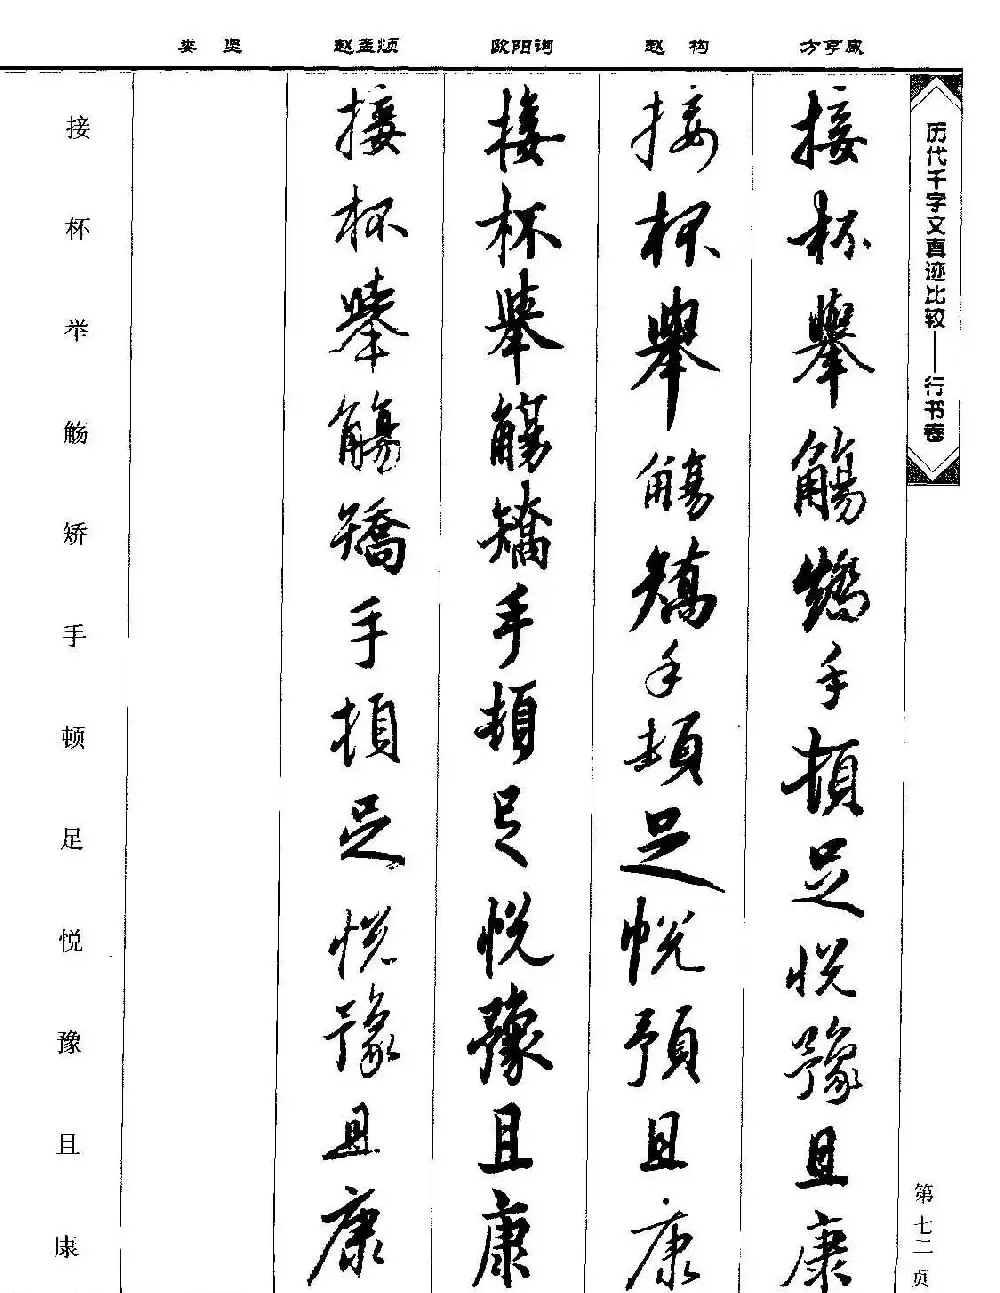 方亨咸
赵构
欧阳询
赵孟頫
娄坚
历代千字文真迹比较——行书卷
接杯舉觴矯手頓足悦豫且康
接杯舉觴矯手頓足悦預且康
接杯舉觴矯手頓足悦豫且康
接杯舉觴矯手頓足悦豫且康
接杯举觞矫手顿足悦豫且康
第七二页